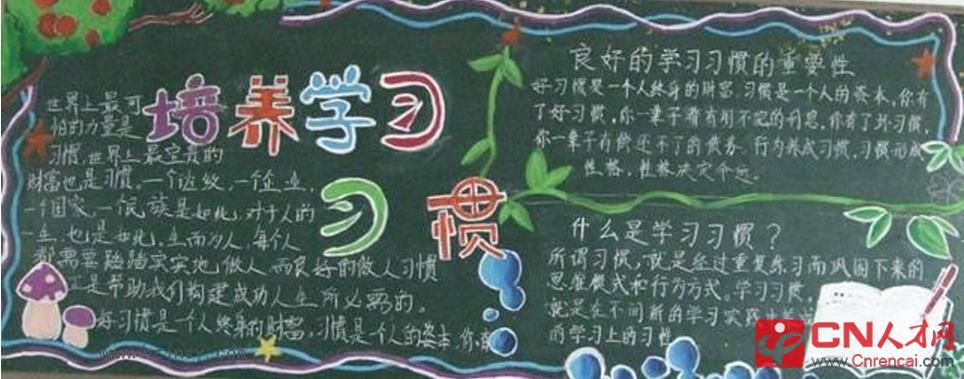 培养学习
习惯
世界上最可
怕的力量是
习惯,世界上最宝贵的
财富也是习惯。一个班级,一个企业,
一个国家,一民族是如此,对于人的
一生,也是如此,生而为人,每个人
都需要踏踏实实地做人,而良好的做人习惯
正是帮助我们构建成功人生所必要的。
好习惯是个人终身的财富,习惯是个人的资本,你
良好的学习习惯的重要性
好习惯是一个人终身的财富,习惯是一个人的资本,你有
了好习惯,你一辈子都有用不完的利息,你有了坏习惯,
你一辈子有还不了的债务。行为养成习惯,习惯形成
性格,性格决定命运。
什么是学习习惯?
所谓习惯,就是经过重复练习而巩固下来的
思维模式和行为方式。学习习惯,
就是在不间断的学习实践
的学习上的习性
CN人才网
www.Cnrencai.com